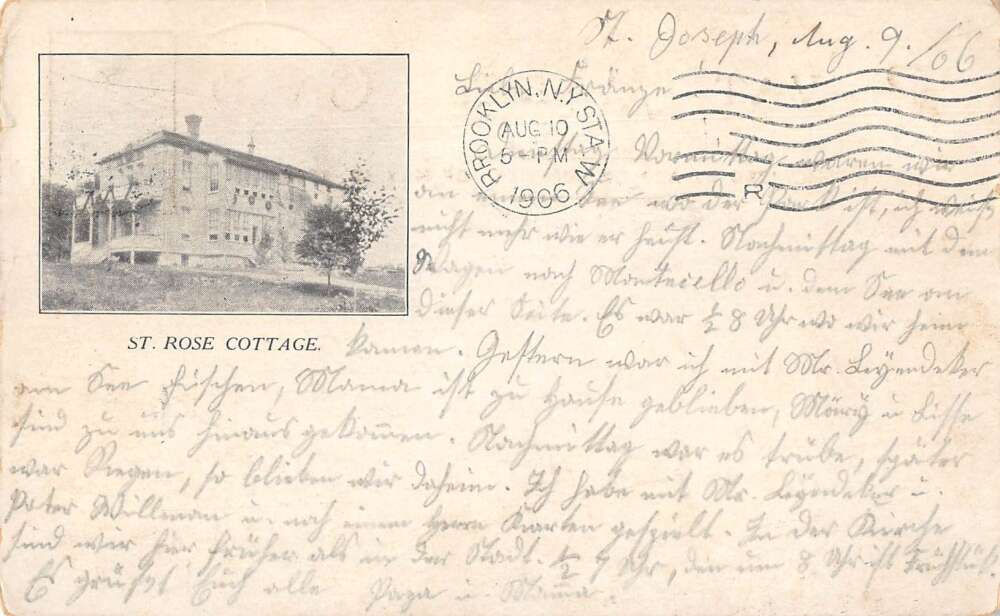 St. Joseph, Aug. 9. /06
Liebe Fränze
BROOKLYN, N.Y. STA. W
AUG 10
5-PM
1906
R
Vormittag waren wir
an See wo der Park ist, ich weiß
nicht mehr wie er heißt. Nachmittag mit dem
Wagen nach Monticello u. dem See am
dieser Seite. Es war ½ 8 Uhr wo wir heim
ST. ROSE COTTAGE.
kamen. Gestern war ich mit Mr. Leyendeker
am See fischen, Mama ist zu Hause geblieben, Märy u Lisse
sind zu uns hinaus gekom̄en. Nachmittag war es trübe, später
war Regen, so blieben wir daheim. Ich habe mit Mr. Leyendeker u.
Pater Willman u. noch einem Herrn Karten gespielt. In der Kirche
sind wir hier früher als in der Stadt. ½ 7 Uhr, den um 8 Uhr ist Frühstük.
Es grüßt Euch alle Papa u. Mam̄a.